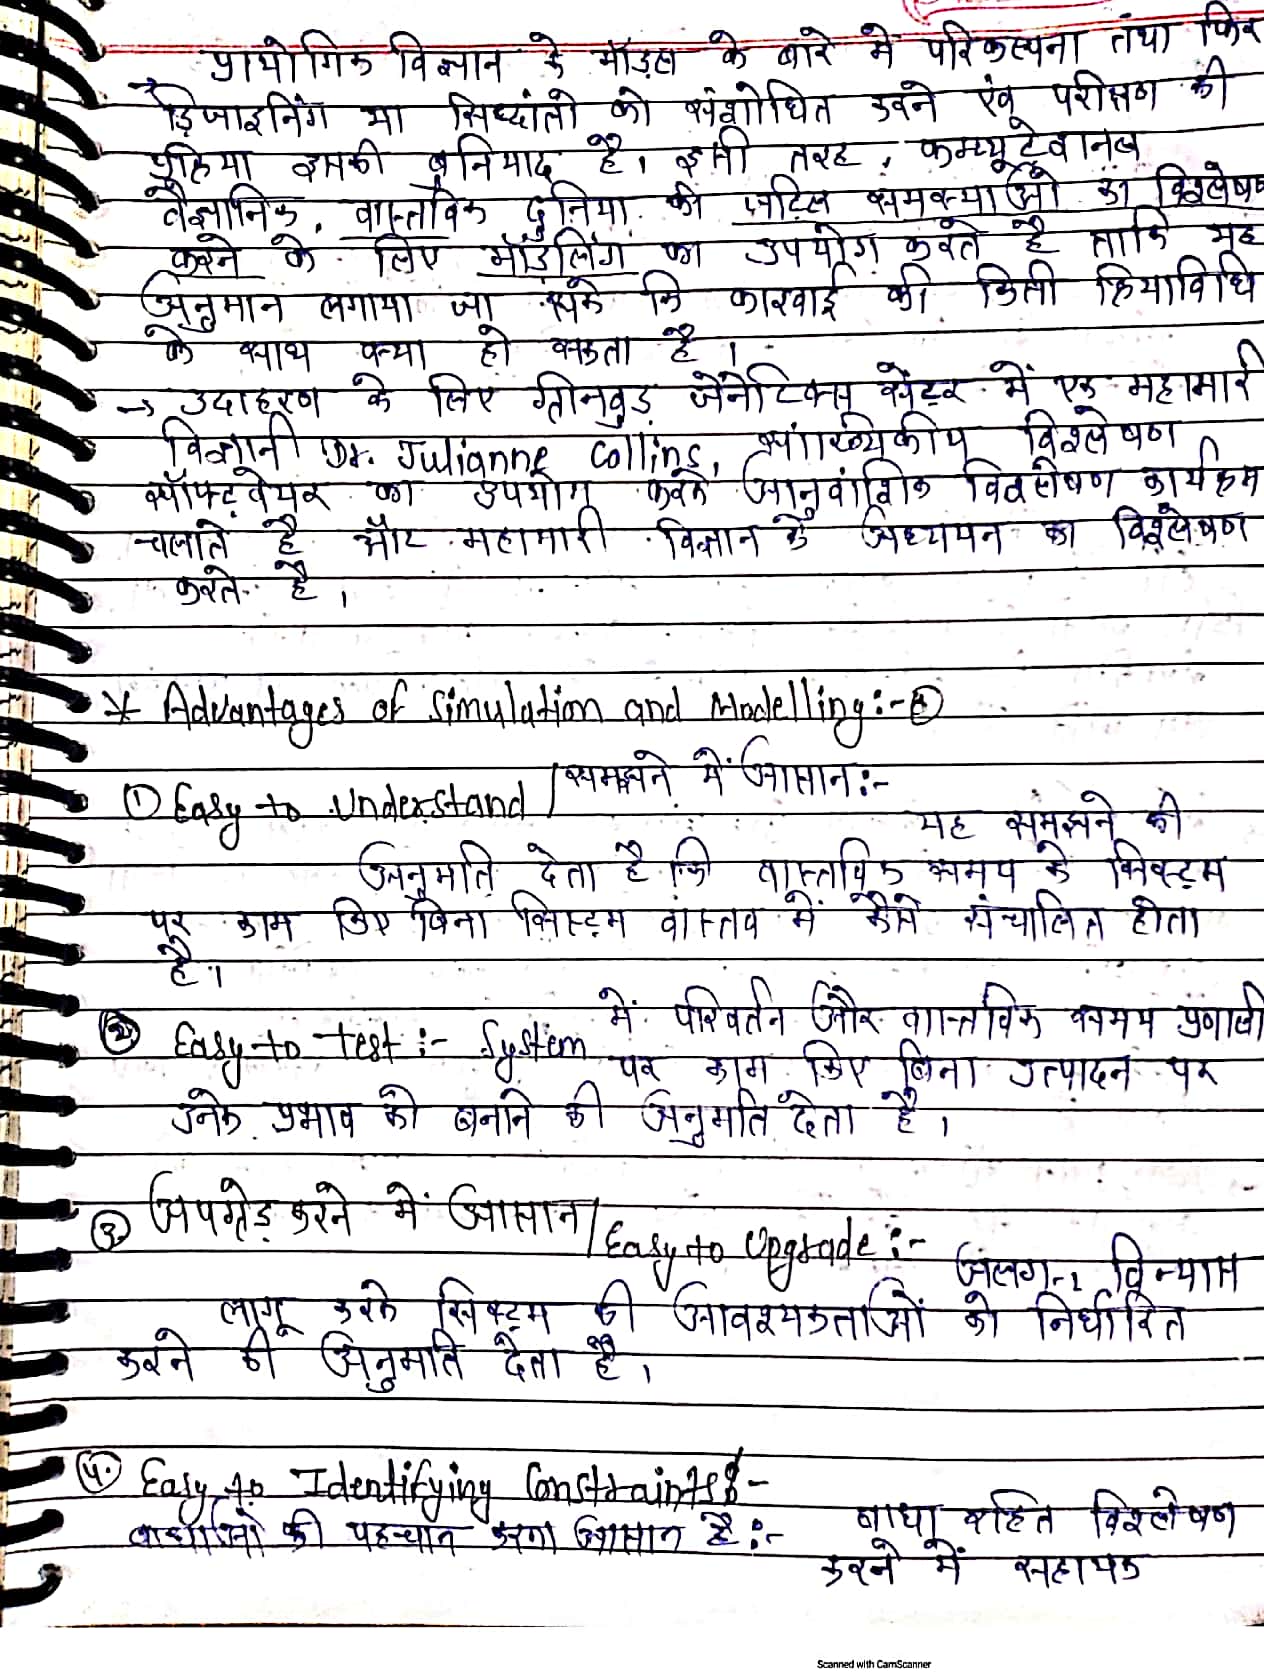 प्रायोगिक विज्ञान के मॉडल के बारे में परिकल्पना तथा फिर
→ डिजाइनिंग या सिध्दांतो को संशोधित करने एंव परीक्षण की
प्रक्रिया इसकी बुनियाद है। इसी तरह, कम्प्यूटेशनल
वैज्ञानिक, वास्तविक दुनिया की जटिल समस्याओं का विश्लेषण
करने के लिए मॉडलिंग का उपयोग करते है ताकि यह
अनुमान लगाया जा सके कि कारवाई की किसी क्रियाविधि
के साथ क्या हो सकता है।
→ उदाहरण के लिए ग्रीनवुड जेनेटिक्स सेंटर में एक महामारी
विज्ञानी Dr. Julianne Collins, सांख्यिकीय विश्लेषण
सॉफ्टवेयर का उपयोग करके आनुवांशिक विश्लेषण कार्यक्रम
चलाते है और महामारी विज्ञान के अध्ययन का विश्लेषण
करते है।
* Advantages of Simulation and Modelling:-
① Easy to Understand / समझने में आसान:-
यह समझने की
अनुमति देता है कि वास्तविक समय के सिस्टम
पर काम किए बिना सिस्टम वास्तव में कैसे संचालित होता
है।
② Easy to test :- System में परिवर्तन और वास्तविक समय प्रणाली
पर काम किए बिना उत्पादन पर
उनके प्रभाव को बनाने की अनुमति देता है।
③ अपग्रेड करने में आसान / Easy to Upgrade :-
अलग-२ विन्यास
लागू करके सिस्टम की आवश्यकताओं को निर्धारित
करने की अनुमति देता है।
④ Easy to Identifying Constraints :-
बाधाओं की पहचान करना आसान है :- बाधा रहित विश्लेषण
करने में सहायक
Scanned with CamScanner